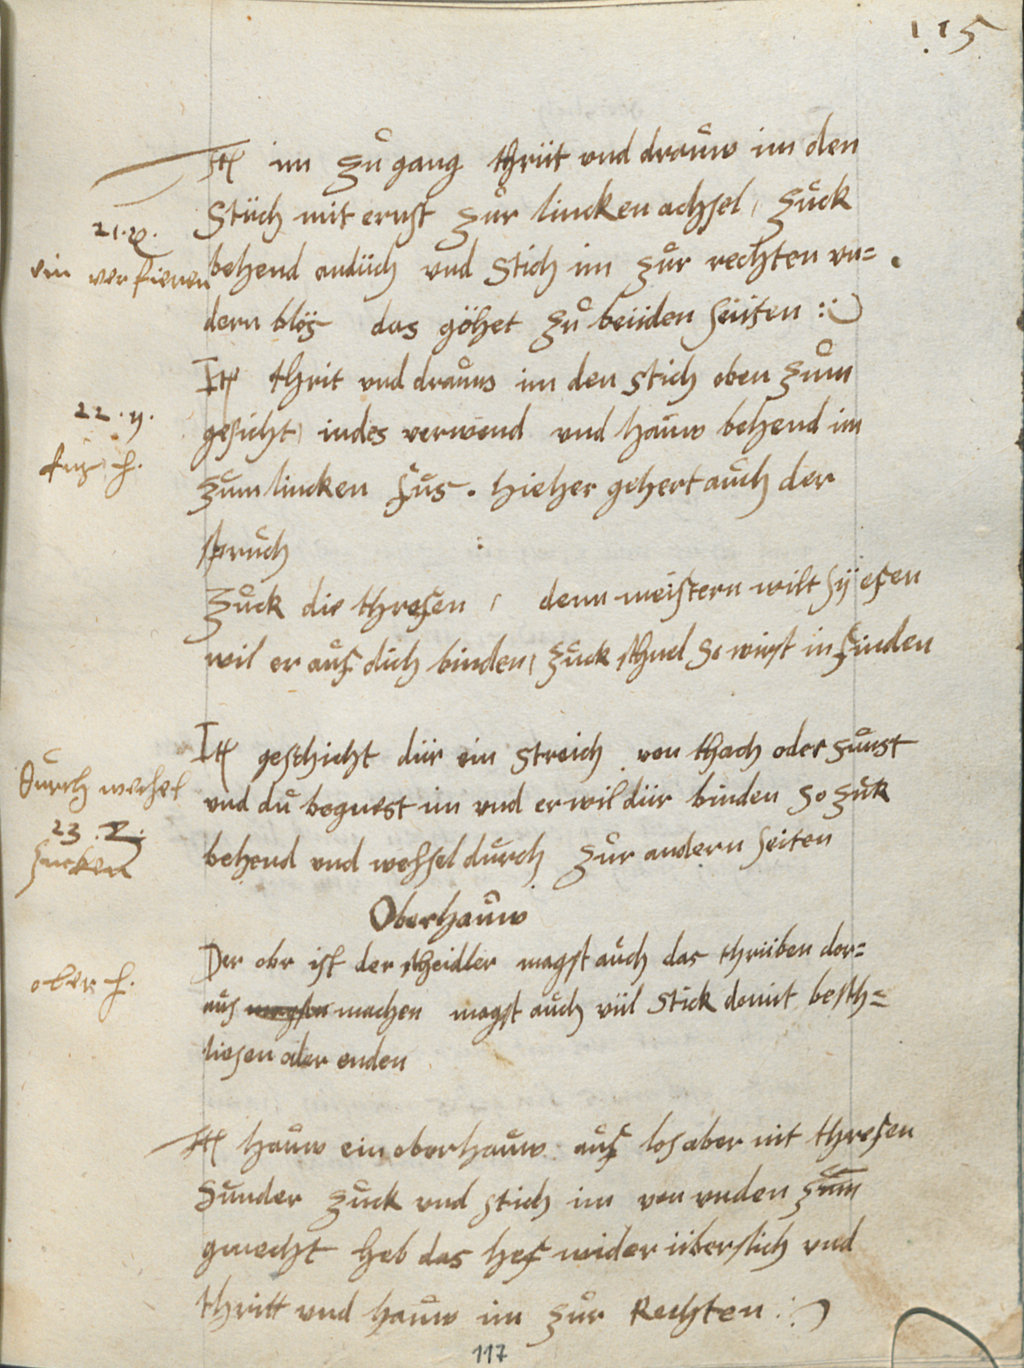 115
Itē im zů gang thrüt vnd dräuw im den
Stüch mit ernst zůr lincken achsel, zuck
21. v.
behend andüch vnd Stich im zůr rechten vn=
ein verfieren
dern blös das göhet zů beüden seüten :)
Itē thrit vnd dräuw im den stich oben zům
22. y.
gesicht, indes verwend vnd hauw behend im
fus h.
zum lincken fus. hieher gehert auch der
spruch
Zuck die thresen, denn meistern wilt sÿ esen
wil er auf dich binden, zuck schnel so wirst in finden
Itē geschicht dür ein streich von thach oder sunst
durch wechel
vnd du begnest im vnd er wil dür binden so zuk
23. Z.
zucken
behend vnd wehsel durch zůr andern seiten
Oberhauw
Der obr ist der scheidler magst auch das thrüben dor=
ober h.
aus machen magst auch vül Stick domit besch=
liesen oder enden
Itē hauw ein oberhauw auf los aber nit thresen
Sunder zuck vnd stich im von vnden zum
gmecht heb das heft wider übersich vnd
thritt vnd hauw im zůr Rechten :)
117